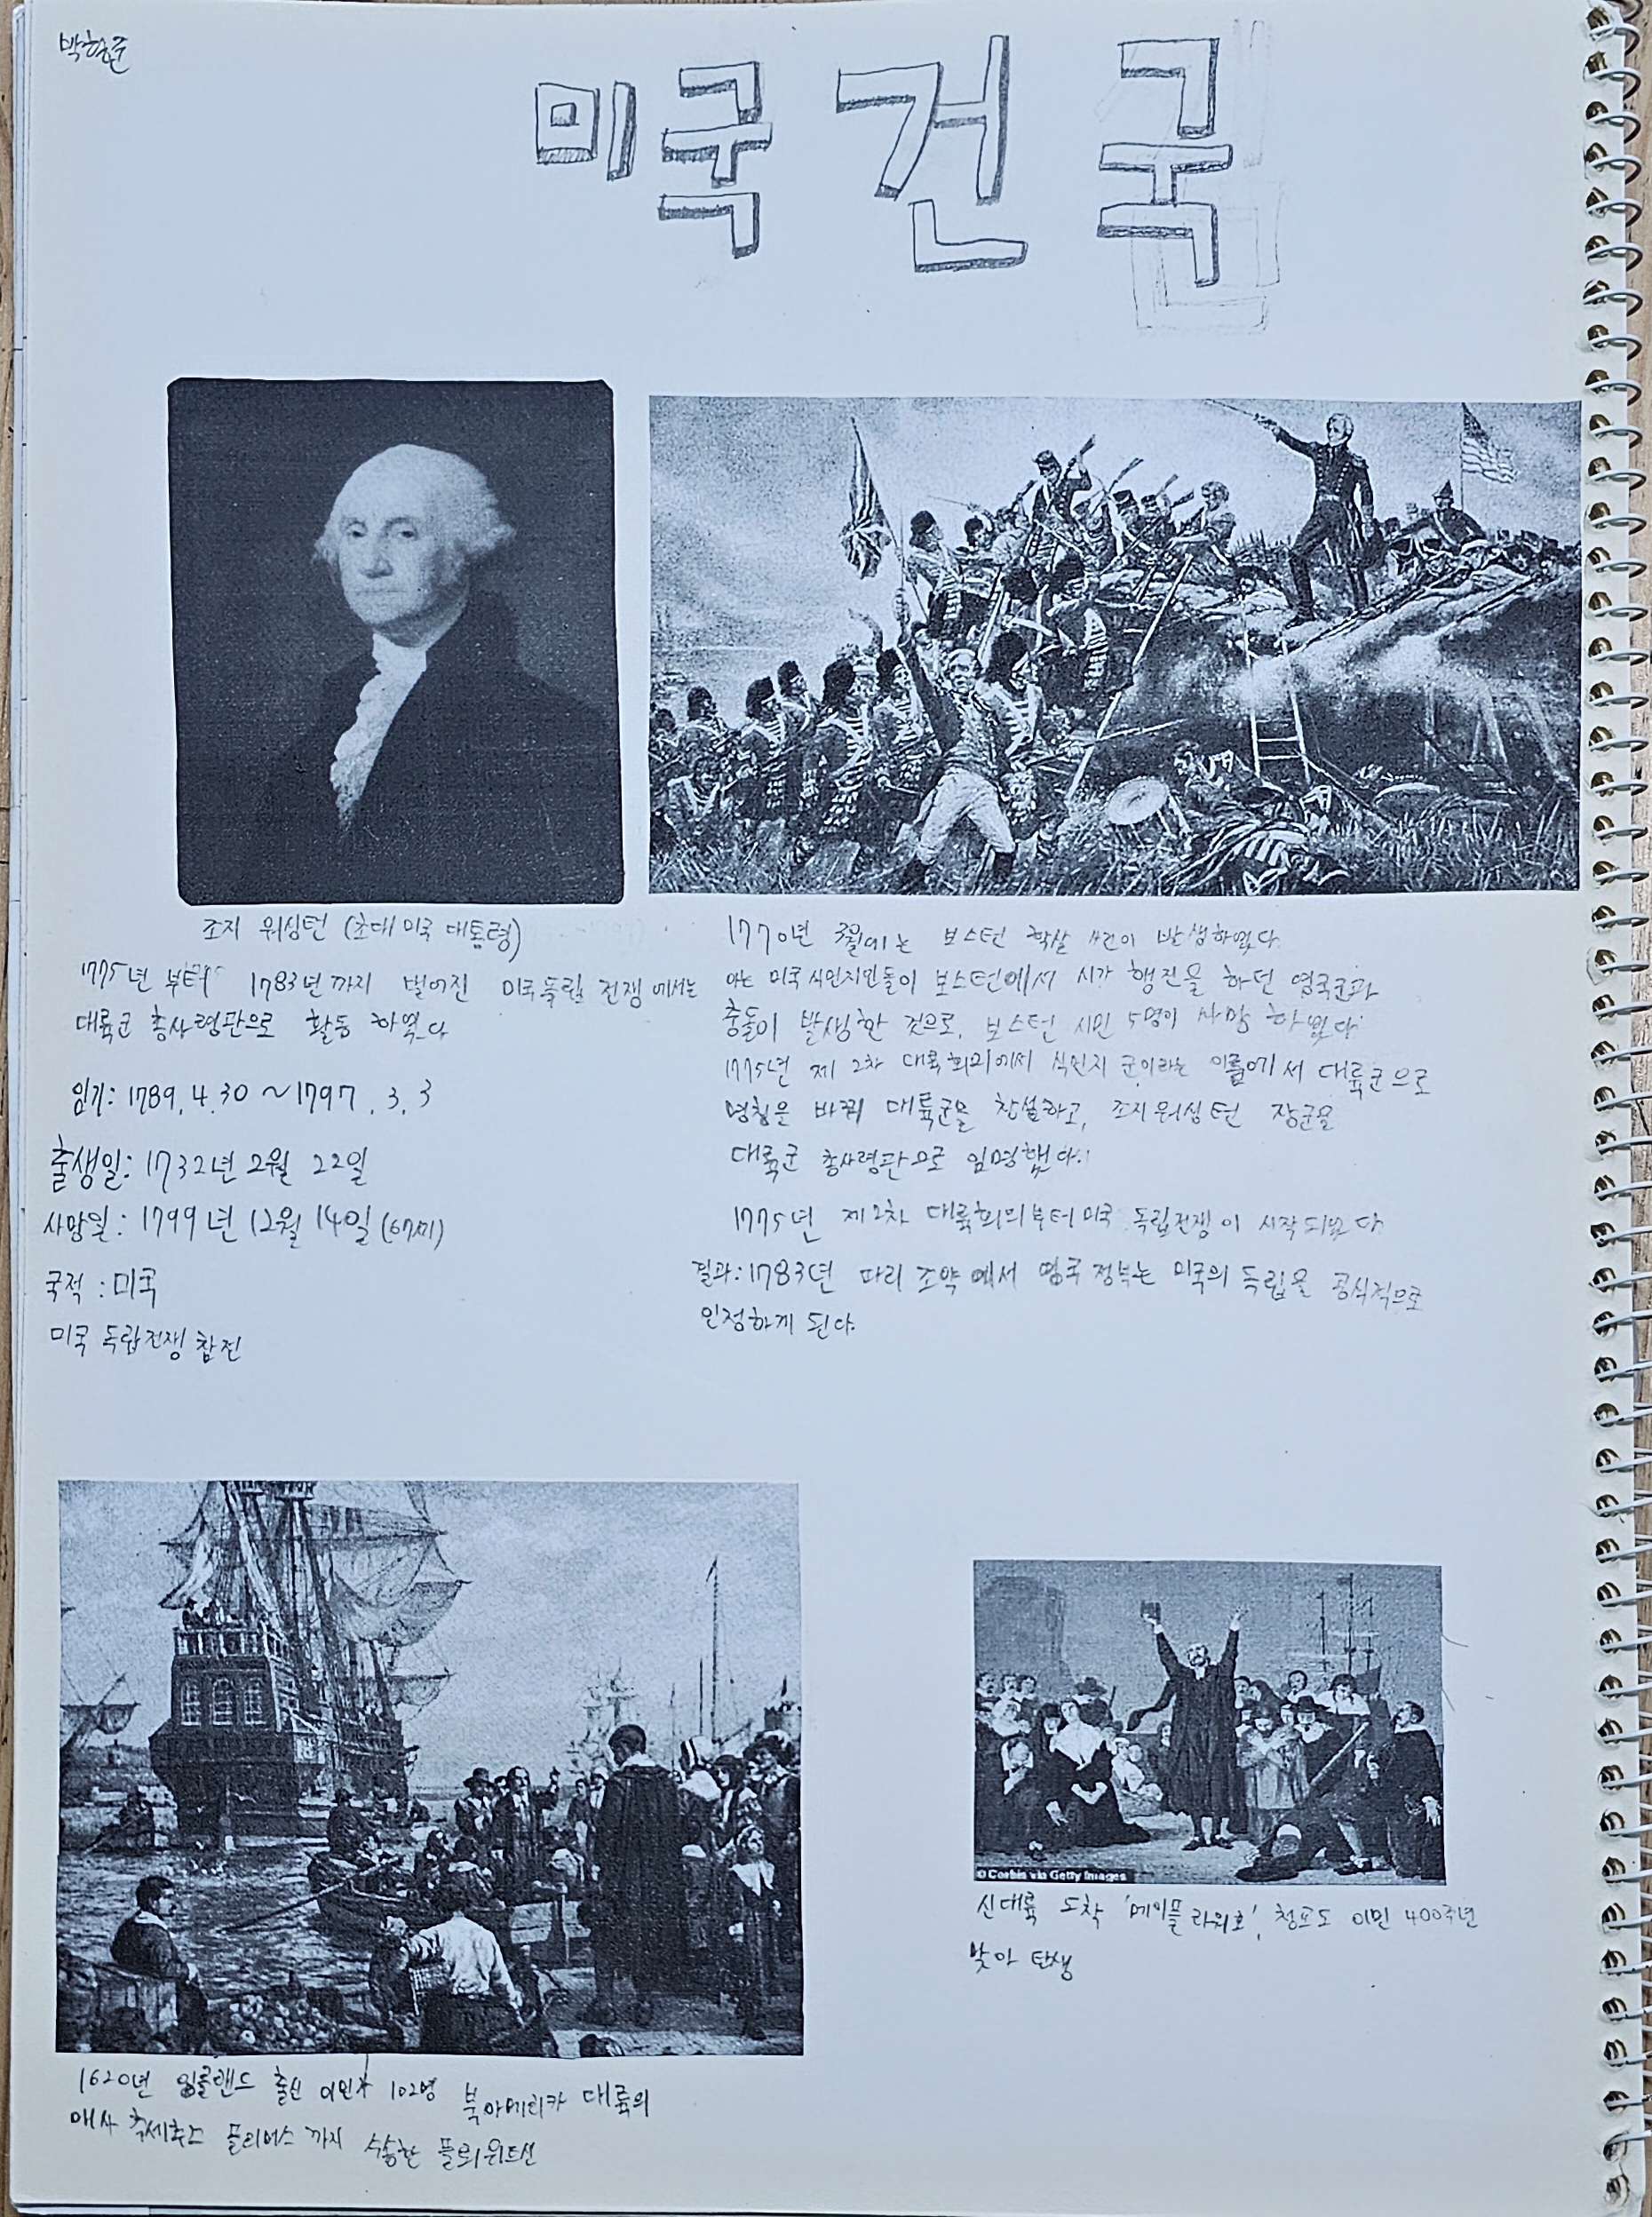 박현준
미국 건국
조지 워싱턴 (초대 미국 대통령)
1775년 부터 1783년 까지 벌어진 미국 독립 전쟁 에서는
대륙군 총사령관으로 활동 하였다
임기: 1789. 4. 30 ~ 1797. 3. 3
출생일: 1732년 2월 22일
사망일: 1799년 12월 14일 (67세)
국적 : 미국
미국 독립전쟁 참전
1770년 3월에는 보스턴 학살 사건이 발생하였다.
미국 식민지민들이 보스턴에서 시가 행진을 하던 영국군과
충돌이 발생한 것으로, 보스턴 시민 5명이 사망 하였다
1775년 제 2차 대륙회의에서 식민지 군이라는 이름에서 대륙군으로
명칭을 바꿔 대륙군을 창설하고, 조지 워싱턴 장군을
대륙군 총사령관으로 임명했다.
1775년 제2차 대륙회의부터 미국 독립전쟁이 시작되었다
결과: 1783년 파리 조약에서 영국 정부는 미국의 독립을 공식적으로
인정하게 된다.
© Corbis via Getty Images
신대륙 도착 '메이플라워호', 청교도 이민 400주년
맞아 탄생
1620년 잉글랜드 출신 이민자 102명 북아메리카 대륙의
매사추세츠 플리머스 까지 수송한